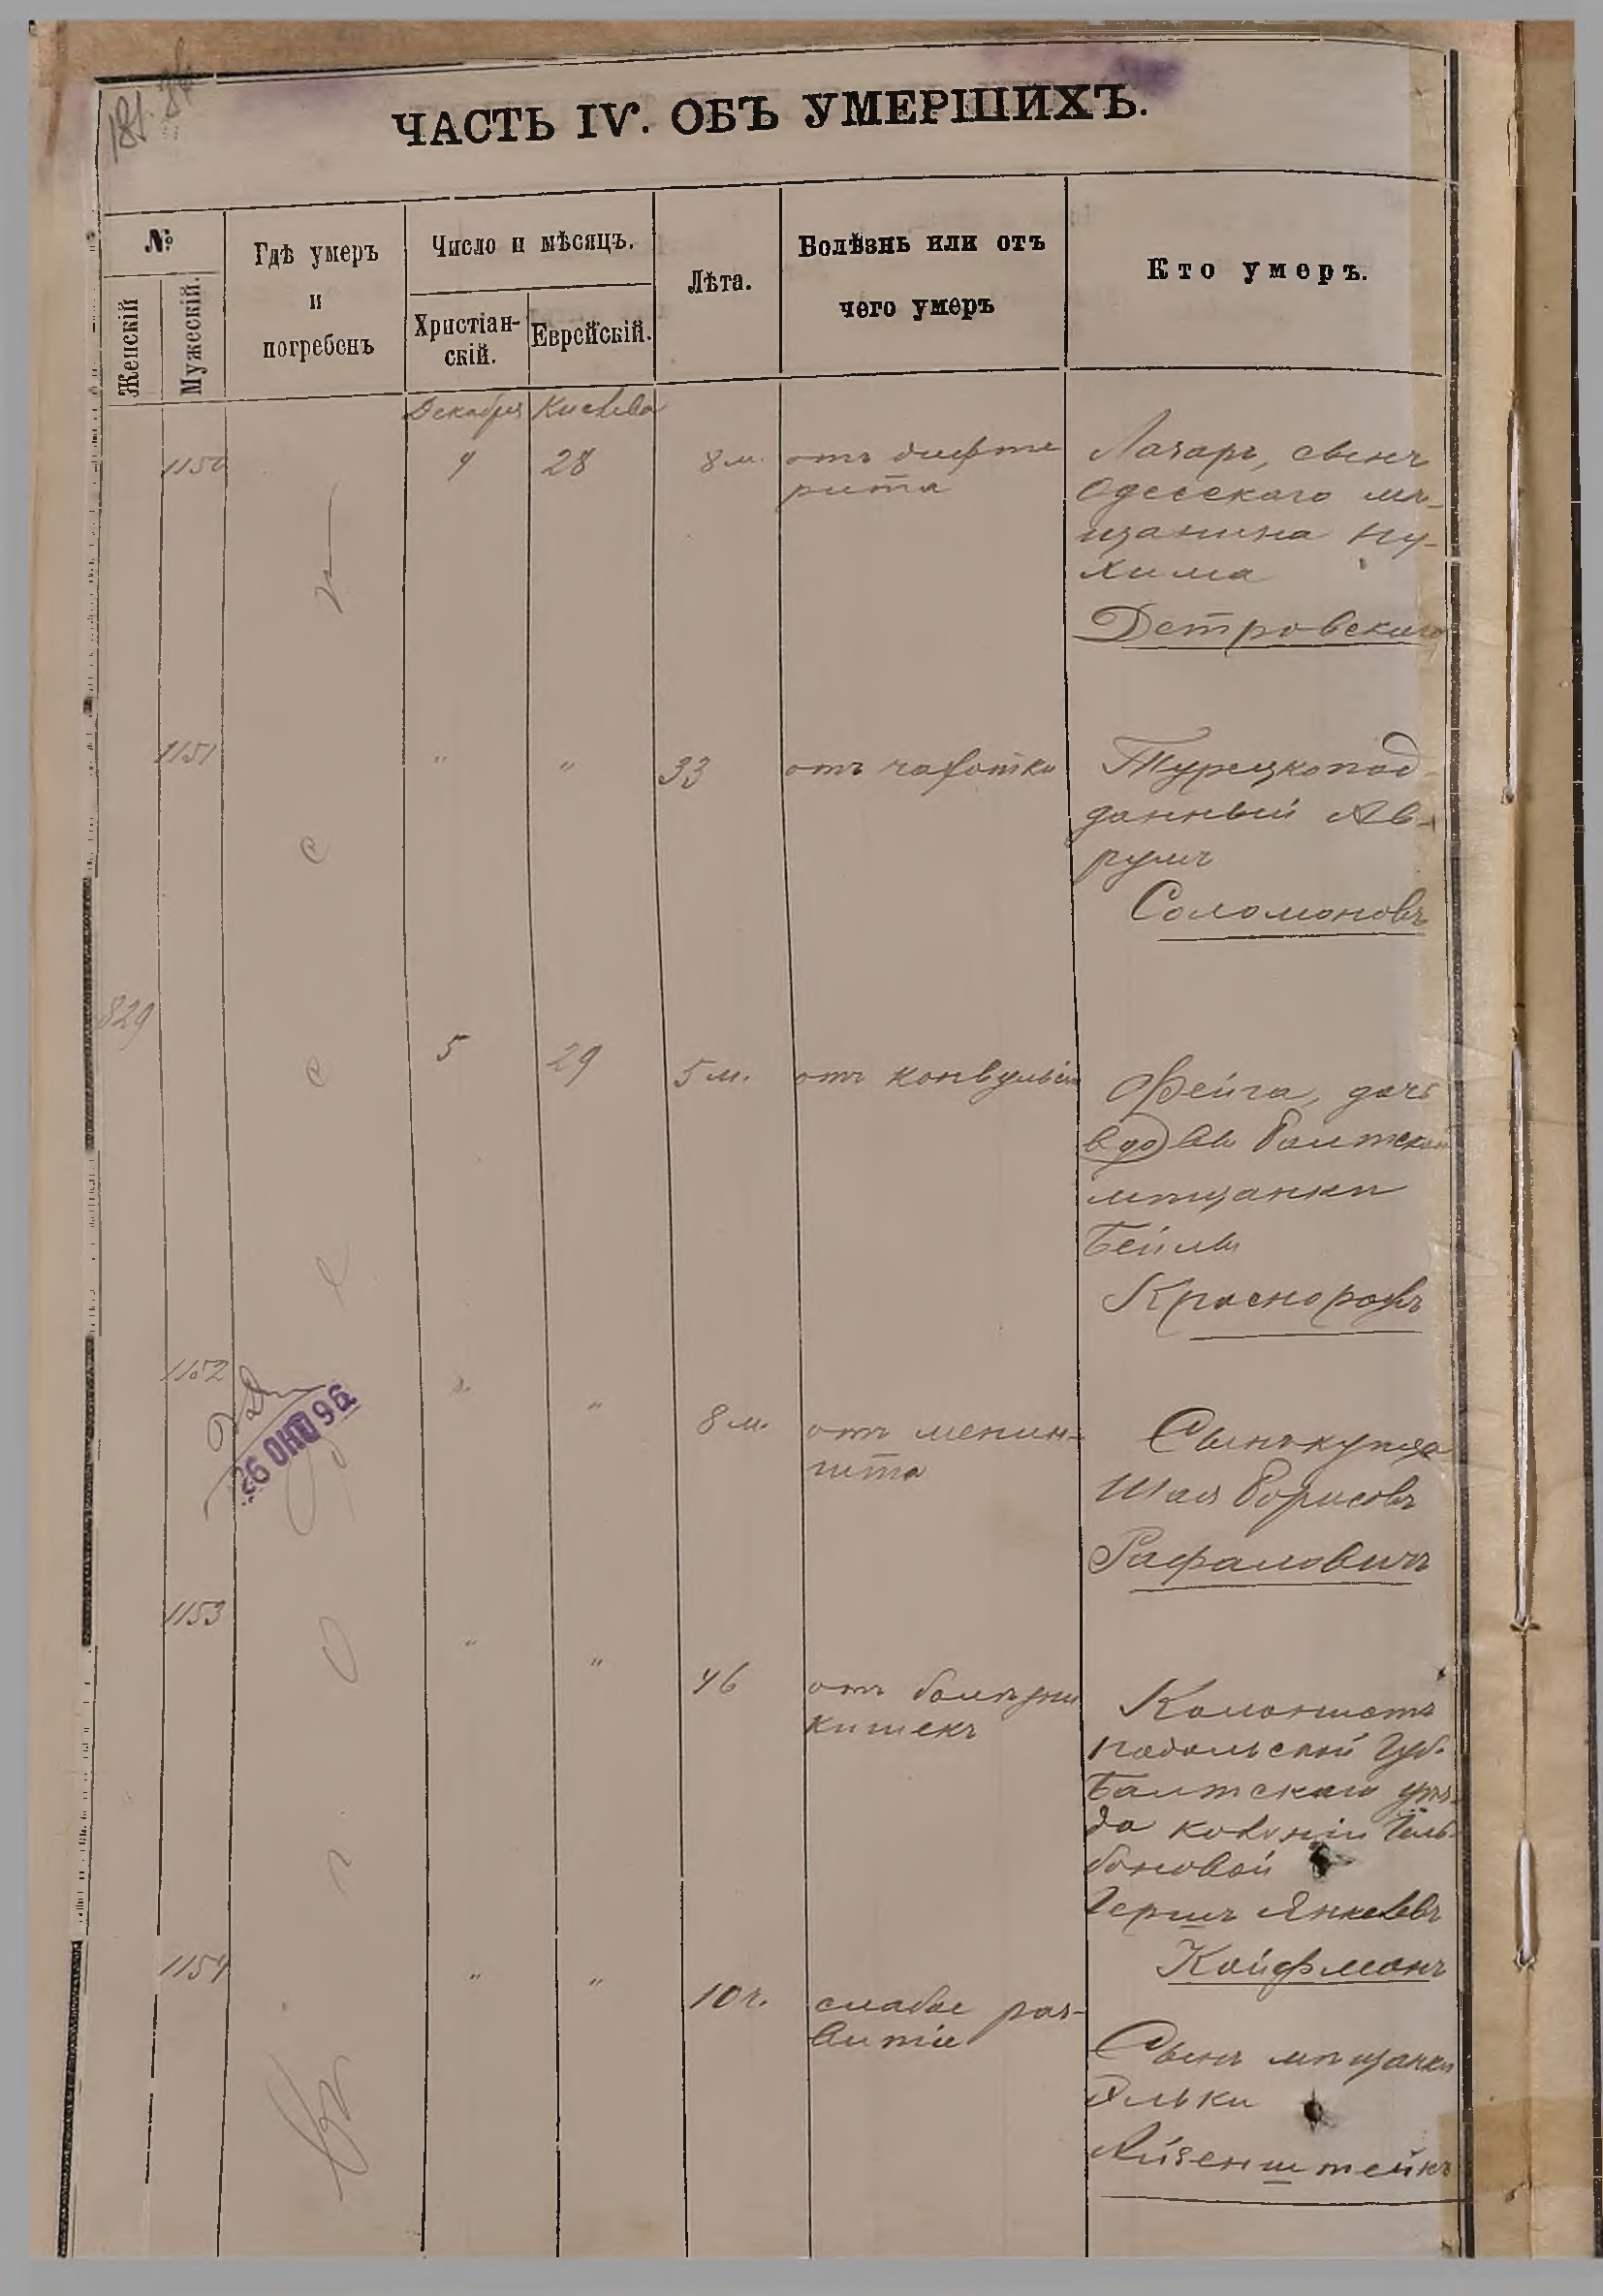 ЧАСТЬ IV. ОБЪ УМЕРШИХЪ.
№
Женскій
Мужескій.
Гдѣ умеръ
и
погребенъ
Число и мѣсяцъ.
Христіан-
скій.
Еврейскій.
Лѣта.
Болѣзнь или отъ
чего умеръ
Кто умеръ.
Декабря Кислева
1150 4 28 8 м. отъ дифте
рита
Лазарь, сынъ
Одесскаго мѣ-
щанина Ну-
хима
Детровскаго
1151 " " 33 отъ чахотки
Турецкопод-
данный Ав-
румъ
Соломоновъ
829 5 29 5 м. отъ конвульсіи
Фейга, дочь
вдовы Балтской
мѣщанки
Бейлы
Краснорогъ
1152 " " 8 м. отъ менин-
гита
Сынъ купца
Шая Борисовъ
Рафаловичъ
26 ОКТ 96
1153 " " 46 отъ болѣзни
кишекъ
Колонистъ
Подольской Губ.
Балтскаго уѣз-
да колоніи
боновой
Гершъ Янкелевъ
Койфманъ
1154 " " 10 ч. слабое раз-
витіе
Сынъ мѣщанки
Эльки
Айзенштейнъ
Одессѣ